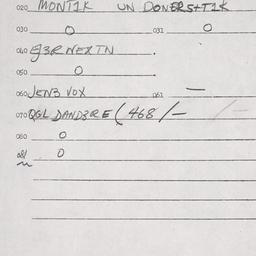 020 MONT1K UN DONERSTT1K
030 O 031 O
040 G3R NEXTN .
050 O
060 JEN3 VOX 061 —
070 QGL DAND3RE (468/-
080 O
081 O